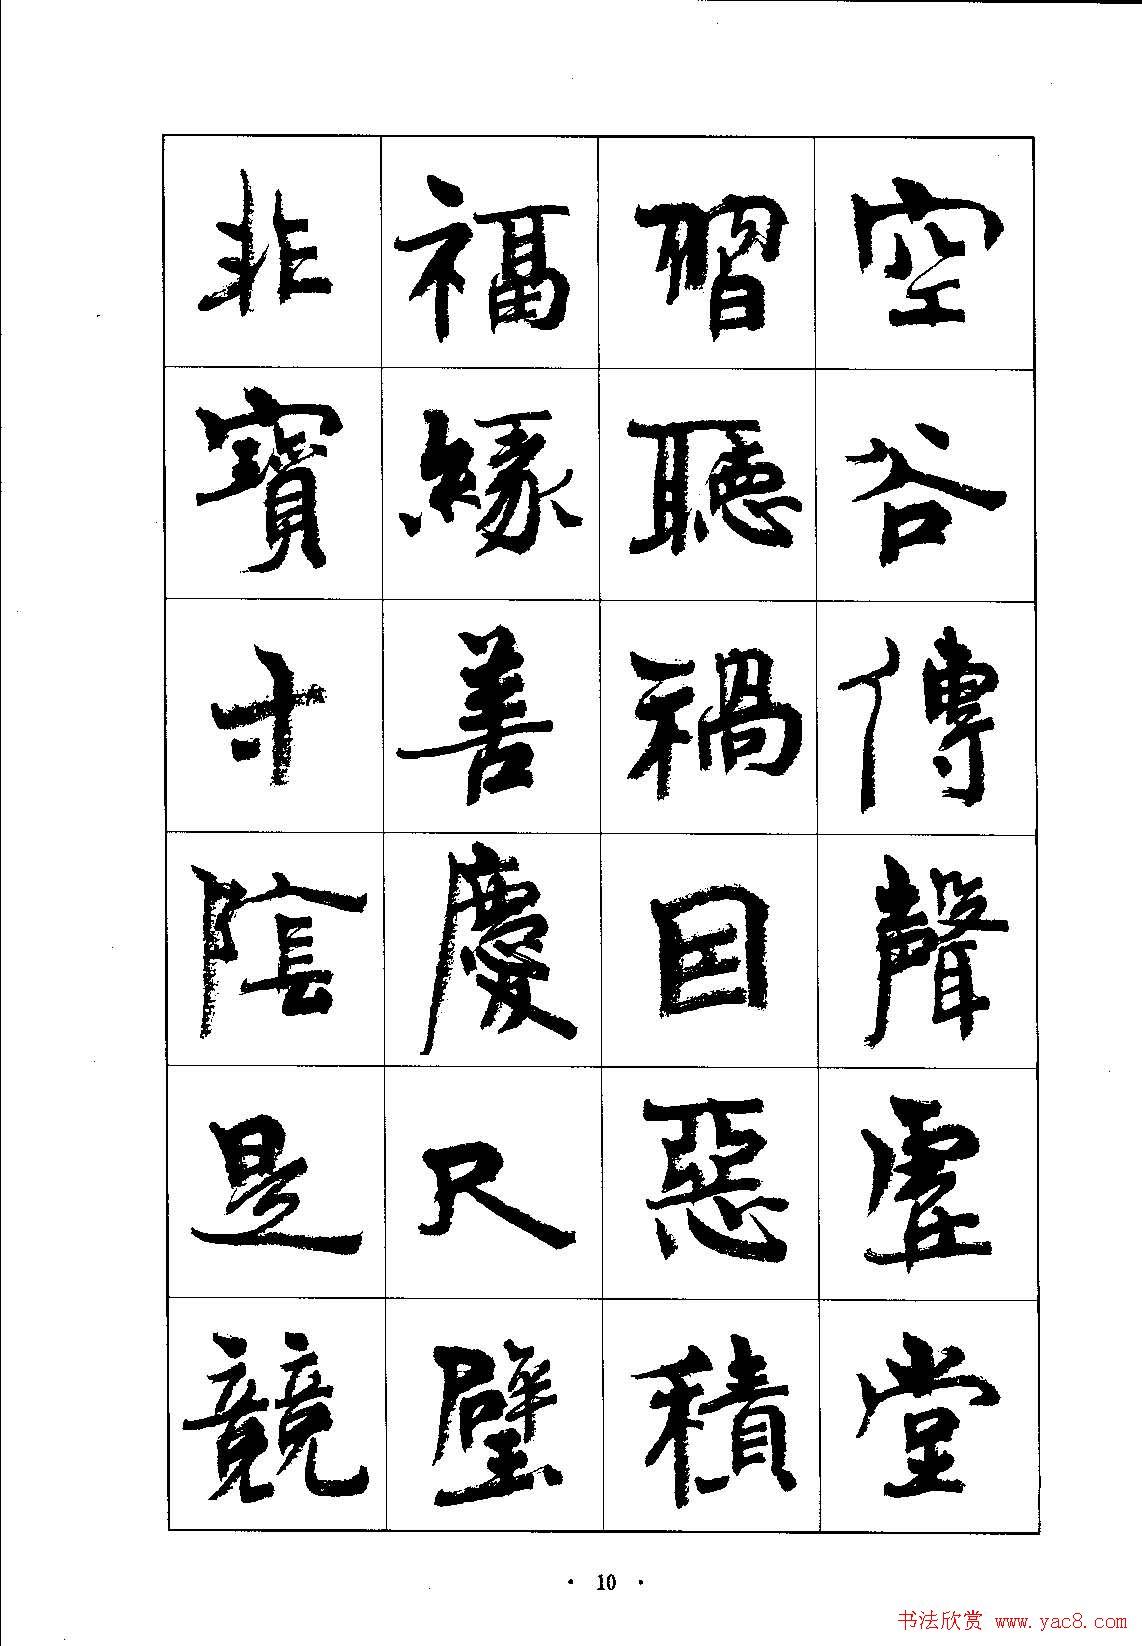 空谷傳聲虛堂
習聽禍因惡積
福緣善慶尺璧
非寶寸陰是競
· 10 ·
书法欣赏 www.yac8.com